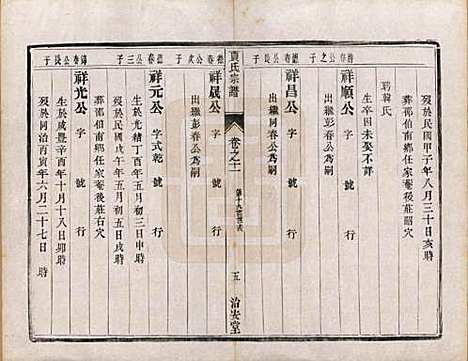 歿於民國甲子年八月三十日亥時
葬鄒伯南鄉任家菴後莊昭穴
聘韓氏
生卒因未娶不詳
祥順公 字 號 行
出繼同春公為嗣
祥昌公 字 號 行
賁氏宗譜
卷之十一
五
治安堂
出繼彭春公為嗣
祥晟公 字 號 行
歿於民國戊午年五月初五日戌時
生於光緒丁酉年五月初三日申時
祥元公 字式乾 號 行
葬鄒伯南鄉任家菴後莊右穴
歿於同治丙寅年六月二十七日
生於咸豐辛酉年十月十八日卯時
祥光公 字 號 行